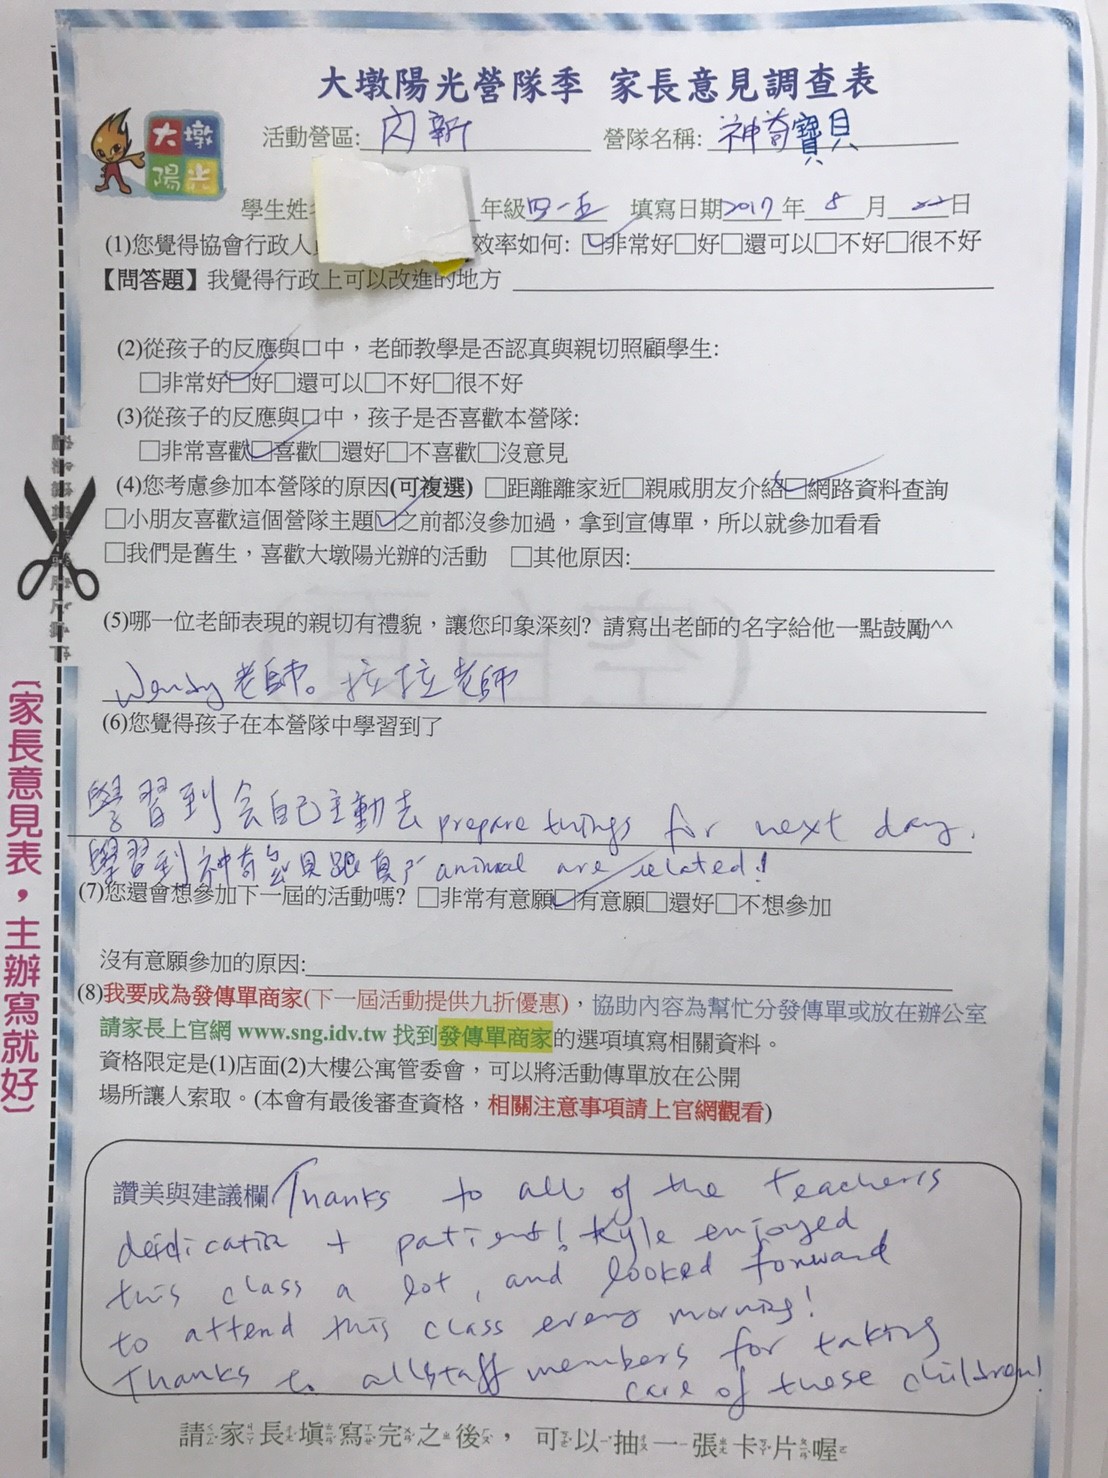 大墩陽光營隊季 家長意見調查表
大墩
陽光
活動營區: 內新 營隊名稱: 神奇寶貝
學生姓 年級四一五 填寫日期2017年 8 月 22日
(1)您覺得協會行政人 效率如何: ☑非常好□好□還可以□不好□很不好
【問答題】我覺得行政上可以改進的地方
(2)從孩子的反應與口中，老師教學是否認真與親切照顧學生:
□非常好☑好□還可以□不好□很不好
(3)從孩子的反應與口中，孩子是否喜歡本營隊:
□非常喜歡☑喜歡□還好□不喜歡□沒意見
(4)您考慮參加本營隊的原因(可複選) □距離離家近□親戚朋友介紹☑網路資料查詢
□小朋友喜歡這個營隊主題☑之前都沒參加過，拿到宣傳單，所以就參加看看
□我們是舊生，喜歡大墩陽光辦的活動 □其他原因:
(5)哪一位老師表現的親切有禮貌，讓您印象深刻? 請寫出老師的名字給他一點鼓勵^^
Wendy老師。拉拉老師
(6)您覺得孩子在本營隊中學習到了
學習到会自己主動去 prepare things for next day.
學習到神奇宝貝跟真的 animal are related!
(7)您還會想參加下一屆的活動嗎? □非常有意願☑有意願□還好□不想參加
沒有意願參加的原因:
(8)我要成為發傳單商家(下一屆活動提供九折優惠)，協助內容為幫忙分發傳單或放在辦公室
請家長上官網 www.sng.idv.tw 找到發傳單商家的選項填寫相關資料。
資格限定是(1)店面(2)大樓公寓管委會，可以將活動傳單放在公開
場所讓人索取。(本會有最後審查資格，相關注意事項請上官網觀看)
讚美與建議欄 Thanks to all of the teachers
deidication + patient! Kyle enjoyed
this class a lot, and looked forward
to attend this class every morning!
Thanks to all staff members for taking
care of these children!
請家長填寫完之後，可以抽一張卡片喔
(家長意見表，主辦寫就好)